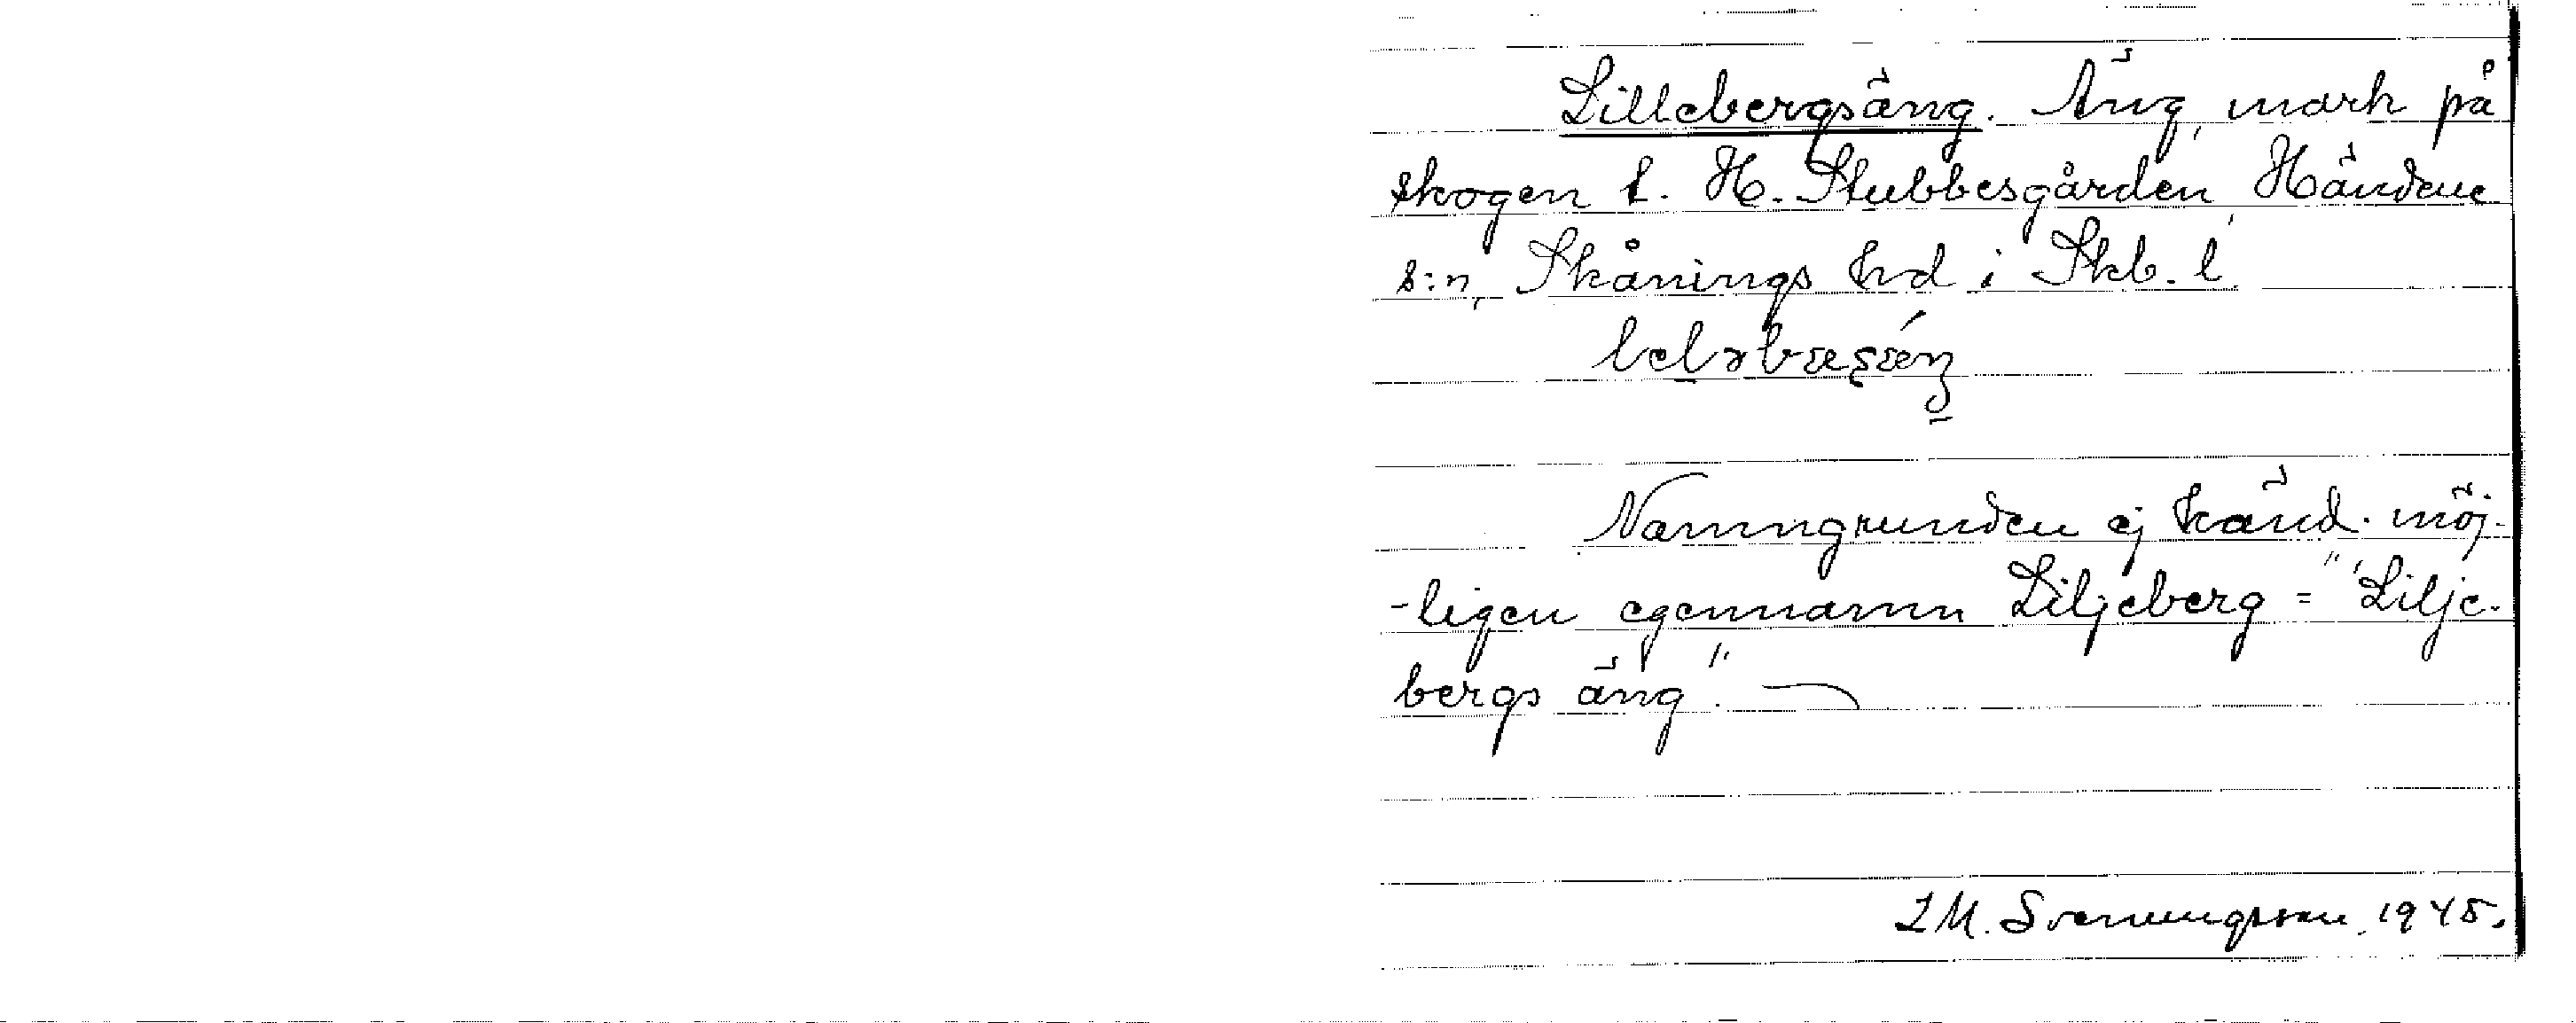 Lillebergsäng. Äng, mark på
skogen t. H. Stubbesgården, Händene
s:n, Skånings hd i Skb. l.
Namngrunden ej känd. möj-
-ligen egennamn Liljeberg = "Lilje-
bergs äng".
Svenungsson, 1945.